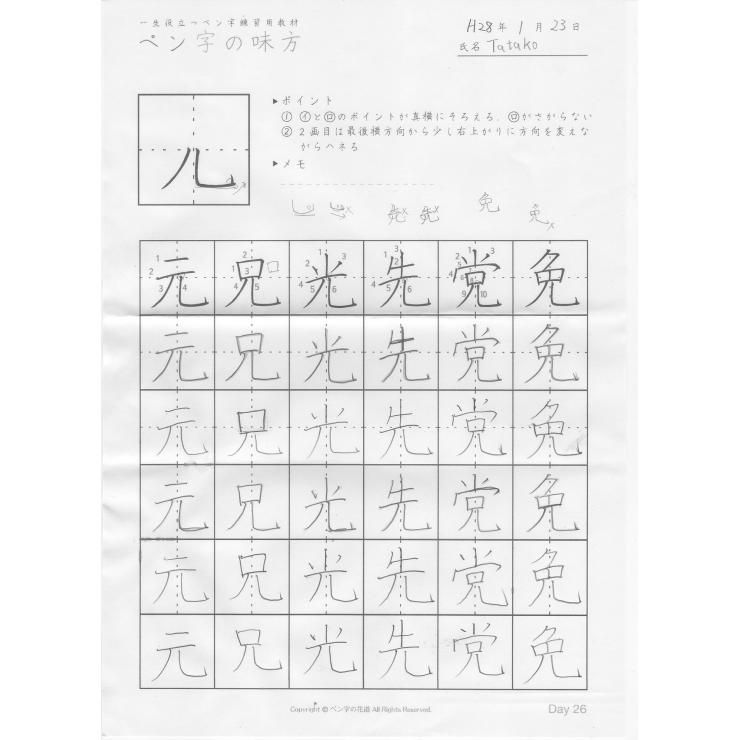 一生役立つペン字練習用教材
ペン字の味方
H28年 1月 23日
氏名 Tatako
▶ポイント
① ㋑と㋺のポイントが真横にそろえる、㋺がさがらない
② 2画目は最後横方向から少し右上がりに方向を変えな
がらハネる
▶メモ
儿
免 免
元 兄 光 先 党 免
元 兄 光 先 党 免
元 兄 光 先 党 免
元 兄 光 先 党 免
元 兄 光 先 党 免
元 兄 光 先 党 免
Copyright © ペン字の花道 All Rights Reserved.
Day 26